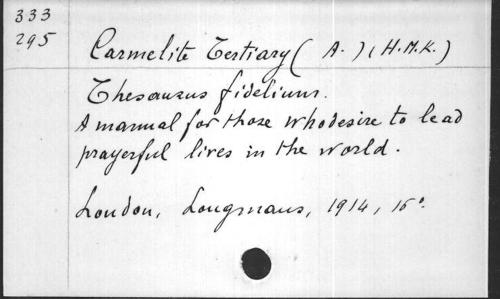 333
295
Carmelite Tertiary ( A. ) ( H.M.K. )
Thesaurus fidelium.
A manual for those who desire to lead
prayerful lives in the world.
London, Longmans, 1914, 16°.